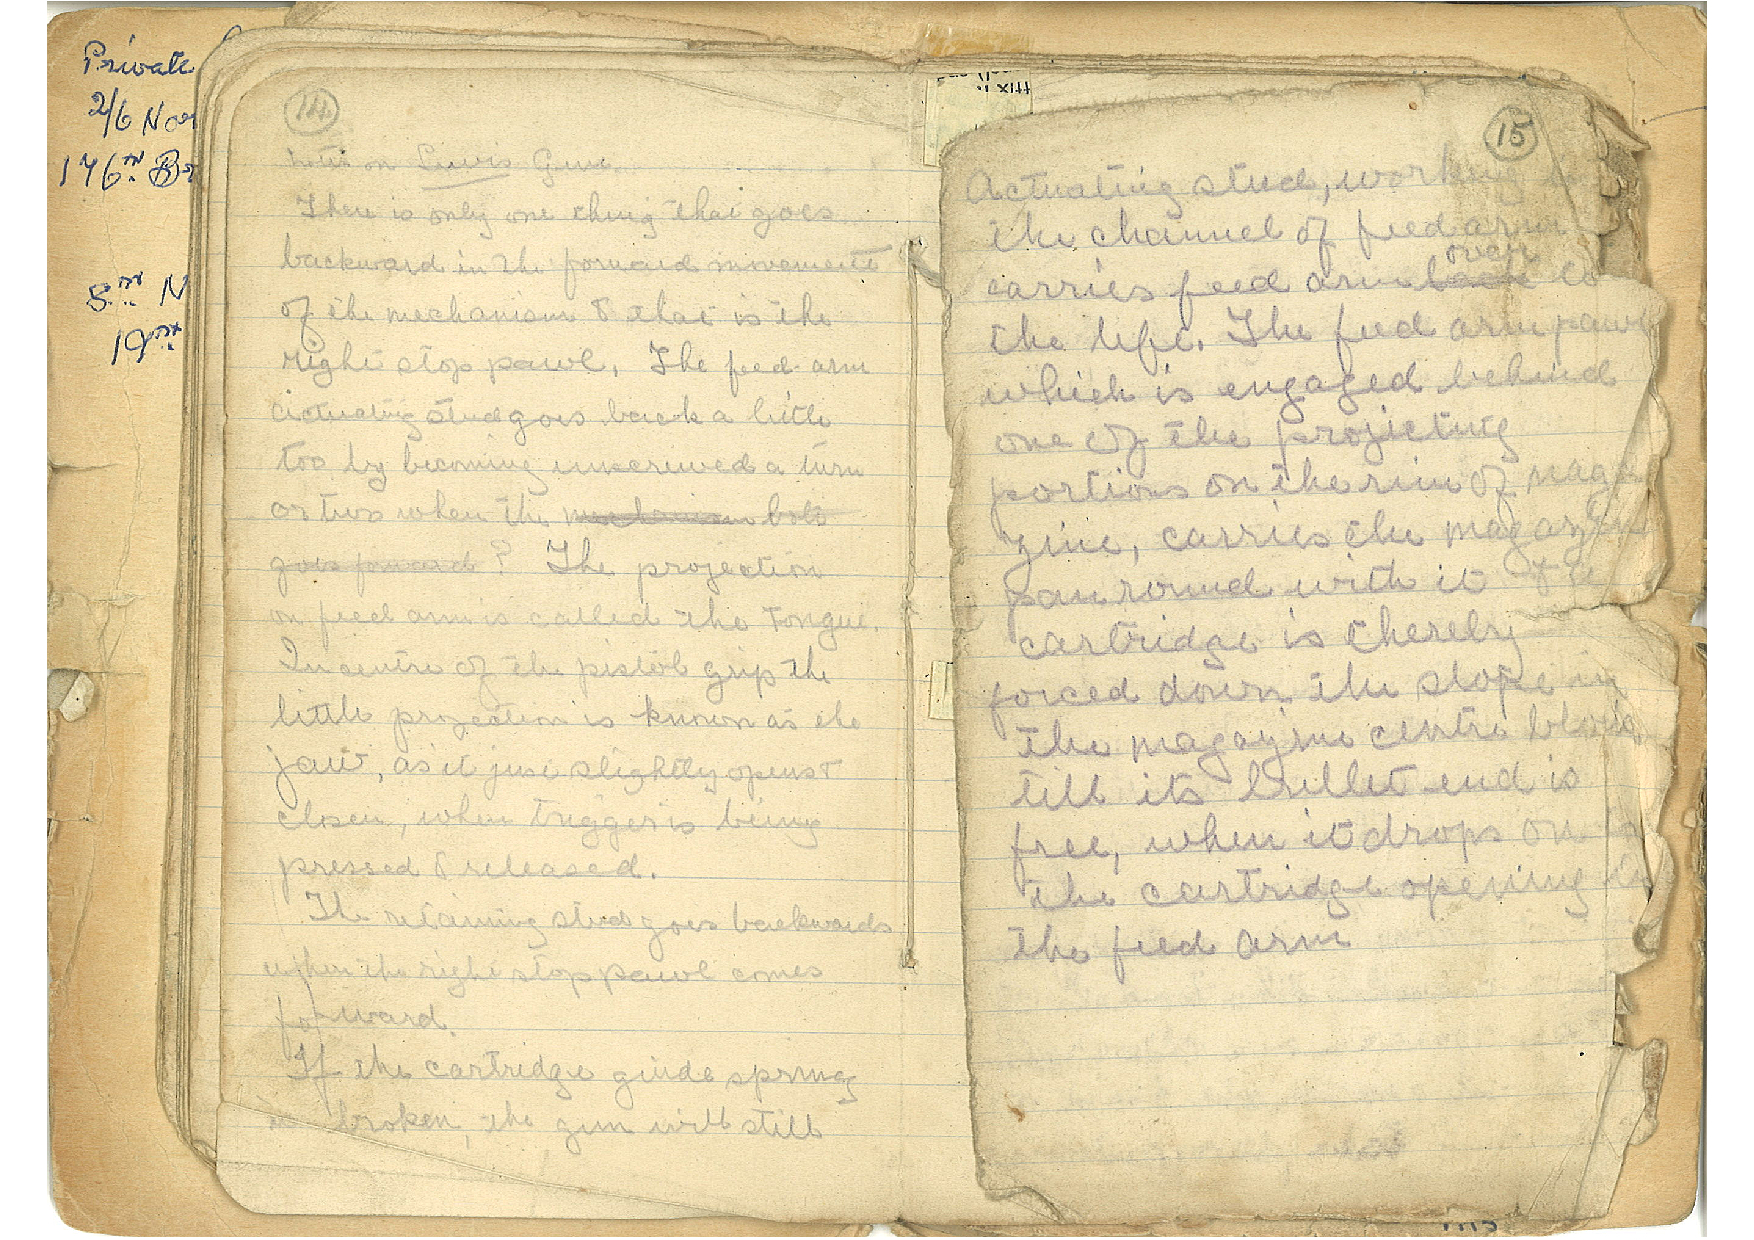 Private
2/6 Nor
176TH Br
5TH N
19TH
14
notes on Lewis Gun.
There is only one thing that goes
backward in the forward movement
of the mechanism & that is the
right stop pawl. The feed arm
actuating stud goes back a little
too by becoming unscrewed a turn
or two when the mechanism bolt
goes forward? The projection
on feed arm is called the Tongue.
In centre of the pistol grip the
little projection is known as the
jaw, as it just slightly opens &
closes, when trigger is being
pressed & released.
The retaining stud goes backwards
when the right stop pawl comes
forward.
If the cartridge guide spring
is broken, the gun will still
15
Actuating stud, working in
the channel of feed arm
over
carries feed arm back to
the left. The feed arm pawl
which is engaged behind
one of the projecting
portions on the rim of maga
zine, carries the magazine
pan round with it & a
cartridge is thereby
forced down the slope in
the magazine centre block
till its bullet end is
free, when it drops on to
the cartridge opening in
the feed arm